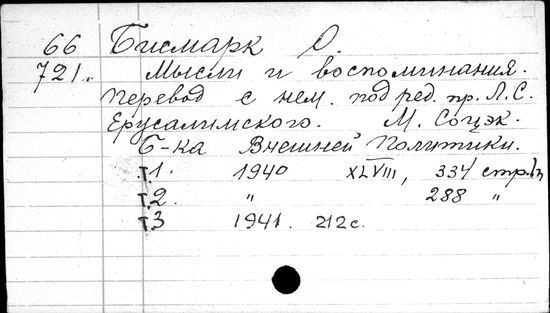 66 Бисмарк О.
721. Мысли и воспоминания.
Перевод с нем. под ред. пр. Л.С.
Ерусалимского. М. Соцэк.
Б-ка Внешней Политики.
т.1. 1940 XLVIII, 334 стр.
т.2. " 288 "
т.3 1941. 212 с.